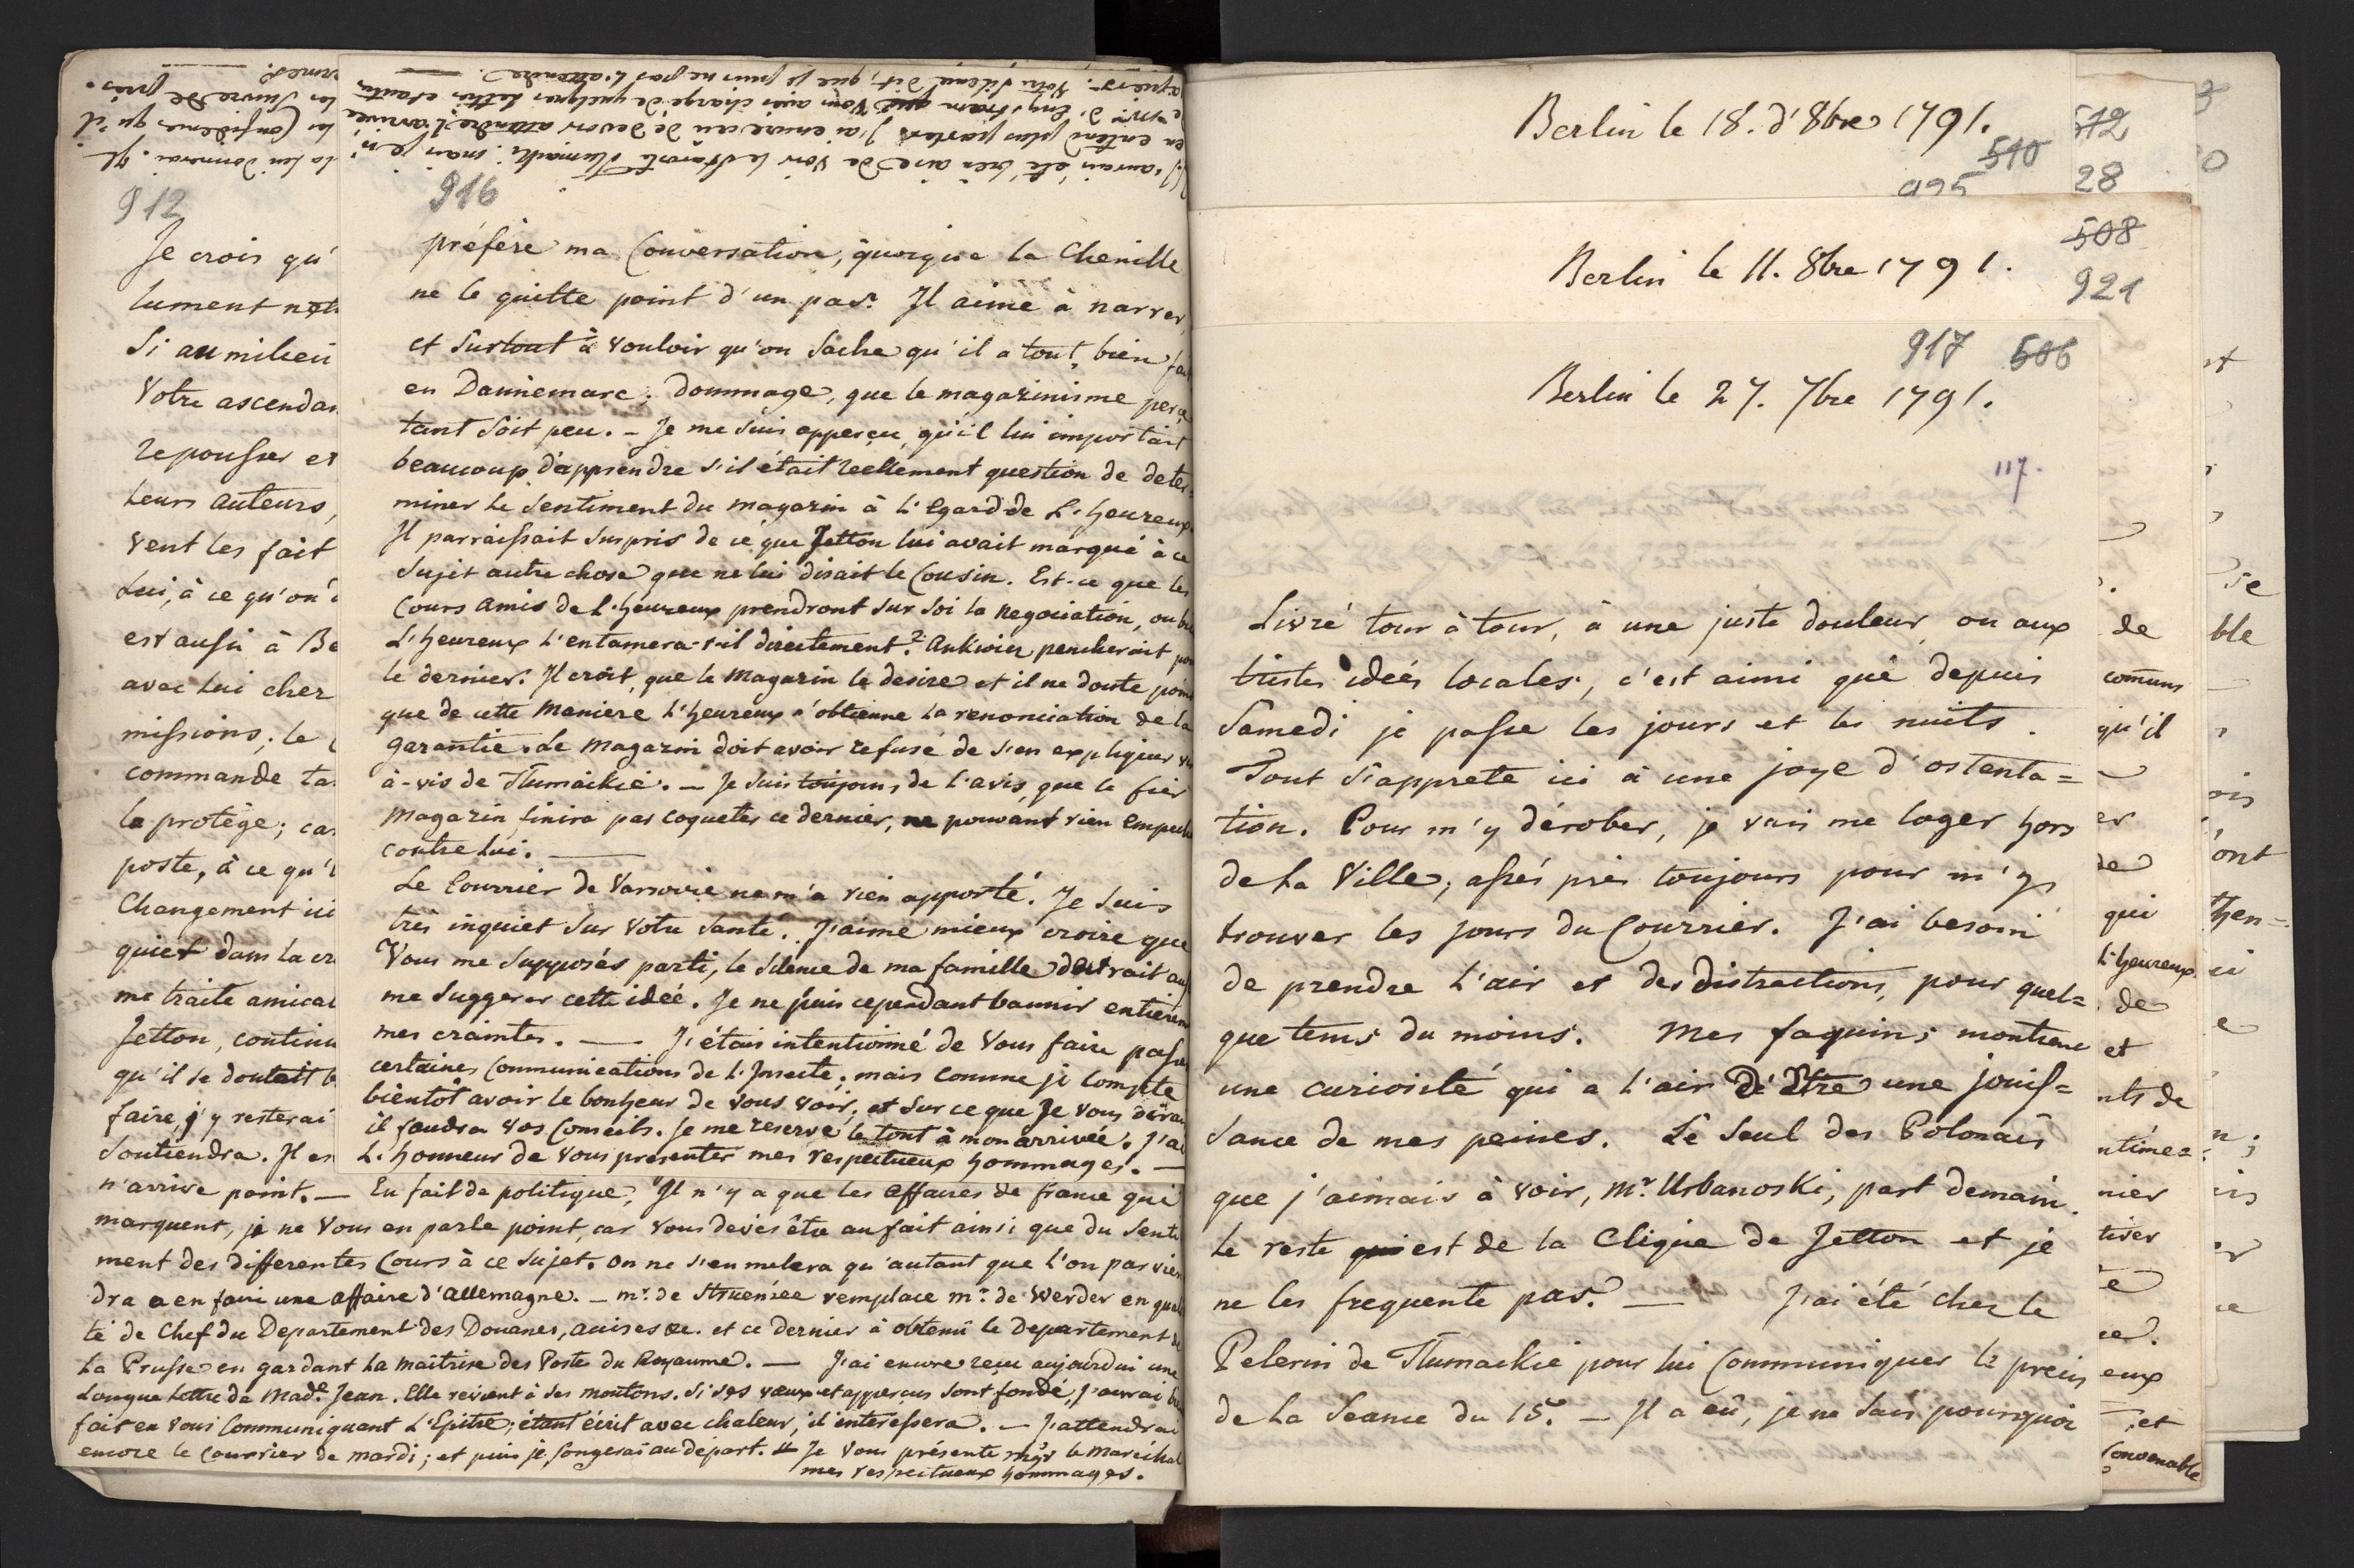 912
Je crois qu'
lument
Si au milieu
Votre ascendan
repousser et
leurs auteurs,
vent les fait
Lui, à ce qu'on
est aussi à Be
avec lui cher
missions; le
commande ta
la protège; ca
poste, à ce qu'
Changement ici
quiet dans la
me traite amical
Jetton, continu
qu'il se doutait b
faire, j'y resterai
Soutiendra. Il
n'arrive point. — En fait de politique, Il n'y a que les affaires de france qui
marquent, je ne Vous en parle point, car vous devés être au fait ainsi que du Senti
ment des differentes Cours à ce Sujet. on ne s'en melera qu'autant que l'on parvien
dra a en faire une affaire d'allemagne. — mr. de Struensée remplace mr. de Werder en quali
té de Chef du Departement des Douanes, acises &c. et ce dernier à obtenû le Departement de
La Prusse en gardant la maitrise des Poste du Royaume. — J'ai encore reçu aujourdui une
Longue Lettre de Made. Jean. Elle revient à ses moutons. Si ses vœux et apperçus sont fondé, j'aurai
fait en vous Communiquant L'Epitre; étant écrit avec chaleur, il interessera. — J'attendrai
encore le Courrier de mardi; et puis je songerai au départ. Je vous présente mgr le Maréchal
mes respectueux hommages.
la lui donnerai. Je
la Confidence qu'il
les suivre de près.
916
J'aurais été bien aise de voir le Tlumackie; mais je n'
en entend plus parler. J'ai encore cru de devoir attendre l'arrivée
de mr. d'Engstrom que Vous avés chargé de quelques Lettres et autres
Votre Silence dit, que je puis ne pas l'attendre.
préfère ma Conversation, quoique la Chenille
ne le quitte point d'un pas. Il aime à narrer,
et surtout à vouloir qu'on sache qu'il a tout bien fai
en Dannemarc. Dommage, que le magazinisme perçe
tant soit peu. — Je me suis apperçu, qu'il lui importait
beaucoup d'apprendre s'il était reellement question de deter=
miner le Sentiment du magazin à l'Egard de L'heureux
Il parraissait surpris de ce que Jetton lui avait marqué à ce
Sujet autre chose que ne lui disait le Cousin. Est-ce que les
Cours amis de L'heureux prendront sur soi la negociation, ou bi
L'heureux l'entamera-t-il directement? Ankwicz pencherait po
le dernier. Il croit, que le Magazin le desire et il ne doute poin
que de cette maniere l'heureux n'obtienne la renonciation de la
garantie. Le magazin doit avoir refusé de s'en expliquer vi
à-vis de Tlumackie. — Je suis toujours de l'avis, que le fier
magazin finira par coqueter ce dernier, ne pouvant rien empech
contre lui. —
Le Courrier de Varsovie ne m'a rien apporté. Je suis
très inquiet sur Votre Santé. J'aime mieux croire que
Vous me supposés parti, le silence de ma famille devrait au
me suggerer cette idée. Je ne puis cependant bannir entierem
mes craintes. — J'étais intentionné de Vous faire passe
certaines Communications de L'Insecte; mais comme je compte
bientôt avoir le bonheur de vous voir, et sur ce que Je vous dirai
il faudra vos Conseils. Je me reserve le tout à mon arrivée. J'ai
L'honneur de Vous presenter mes respectueux hommages. —
Berlin le 18. d'8bre 1791.
510
512
28
Berlin le 11. 8bre 1791.
508
921
917 506
Berlin le 27. 7bre 1791.
117.
Livré tour à tour, à une juste douleur, ou aux
tristes idées locales, c'est ainsi que depuis
Samedi je passe les jours et les nuits.
Tout s'apprete ici à une joye d'ostenta=
tion. Pour m'y dérober, je vais me loger hors
de la Ville; assés près toujours pour m'y
trouver les jours du Courrier. J'ai besoin
de prendre l'air et des distractions, pour quel=
que tems du moins. Mes faquins montrent
une curiosité qui a l'air d'être une jouis=
sance de mes peines. Le Seul des Polonais
que j'aimais à voir, Mr. Urbanoski, part demain.
Le reste est de la Clique de Jetton et je
ne les frequente pas. — J'ai été chez le
Pelerin de Tlumackie pour lui Communiquer le precis
de la Seance du 15. — Il a eû, je ne sais pourquoi
de
comuns
qu'il
er
de
qui
L'heureux
de
et
nts de
ntimea
nier
tiver
te
ce.
eux
et
Convenable
se
ble
ois
ont
then=
ci